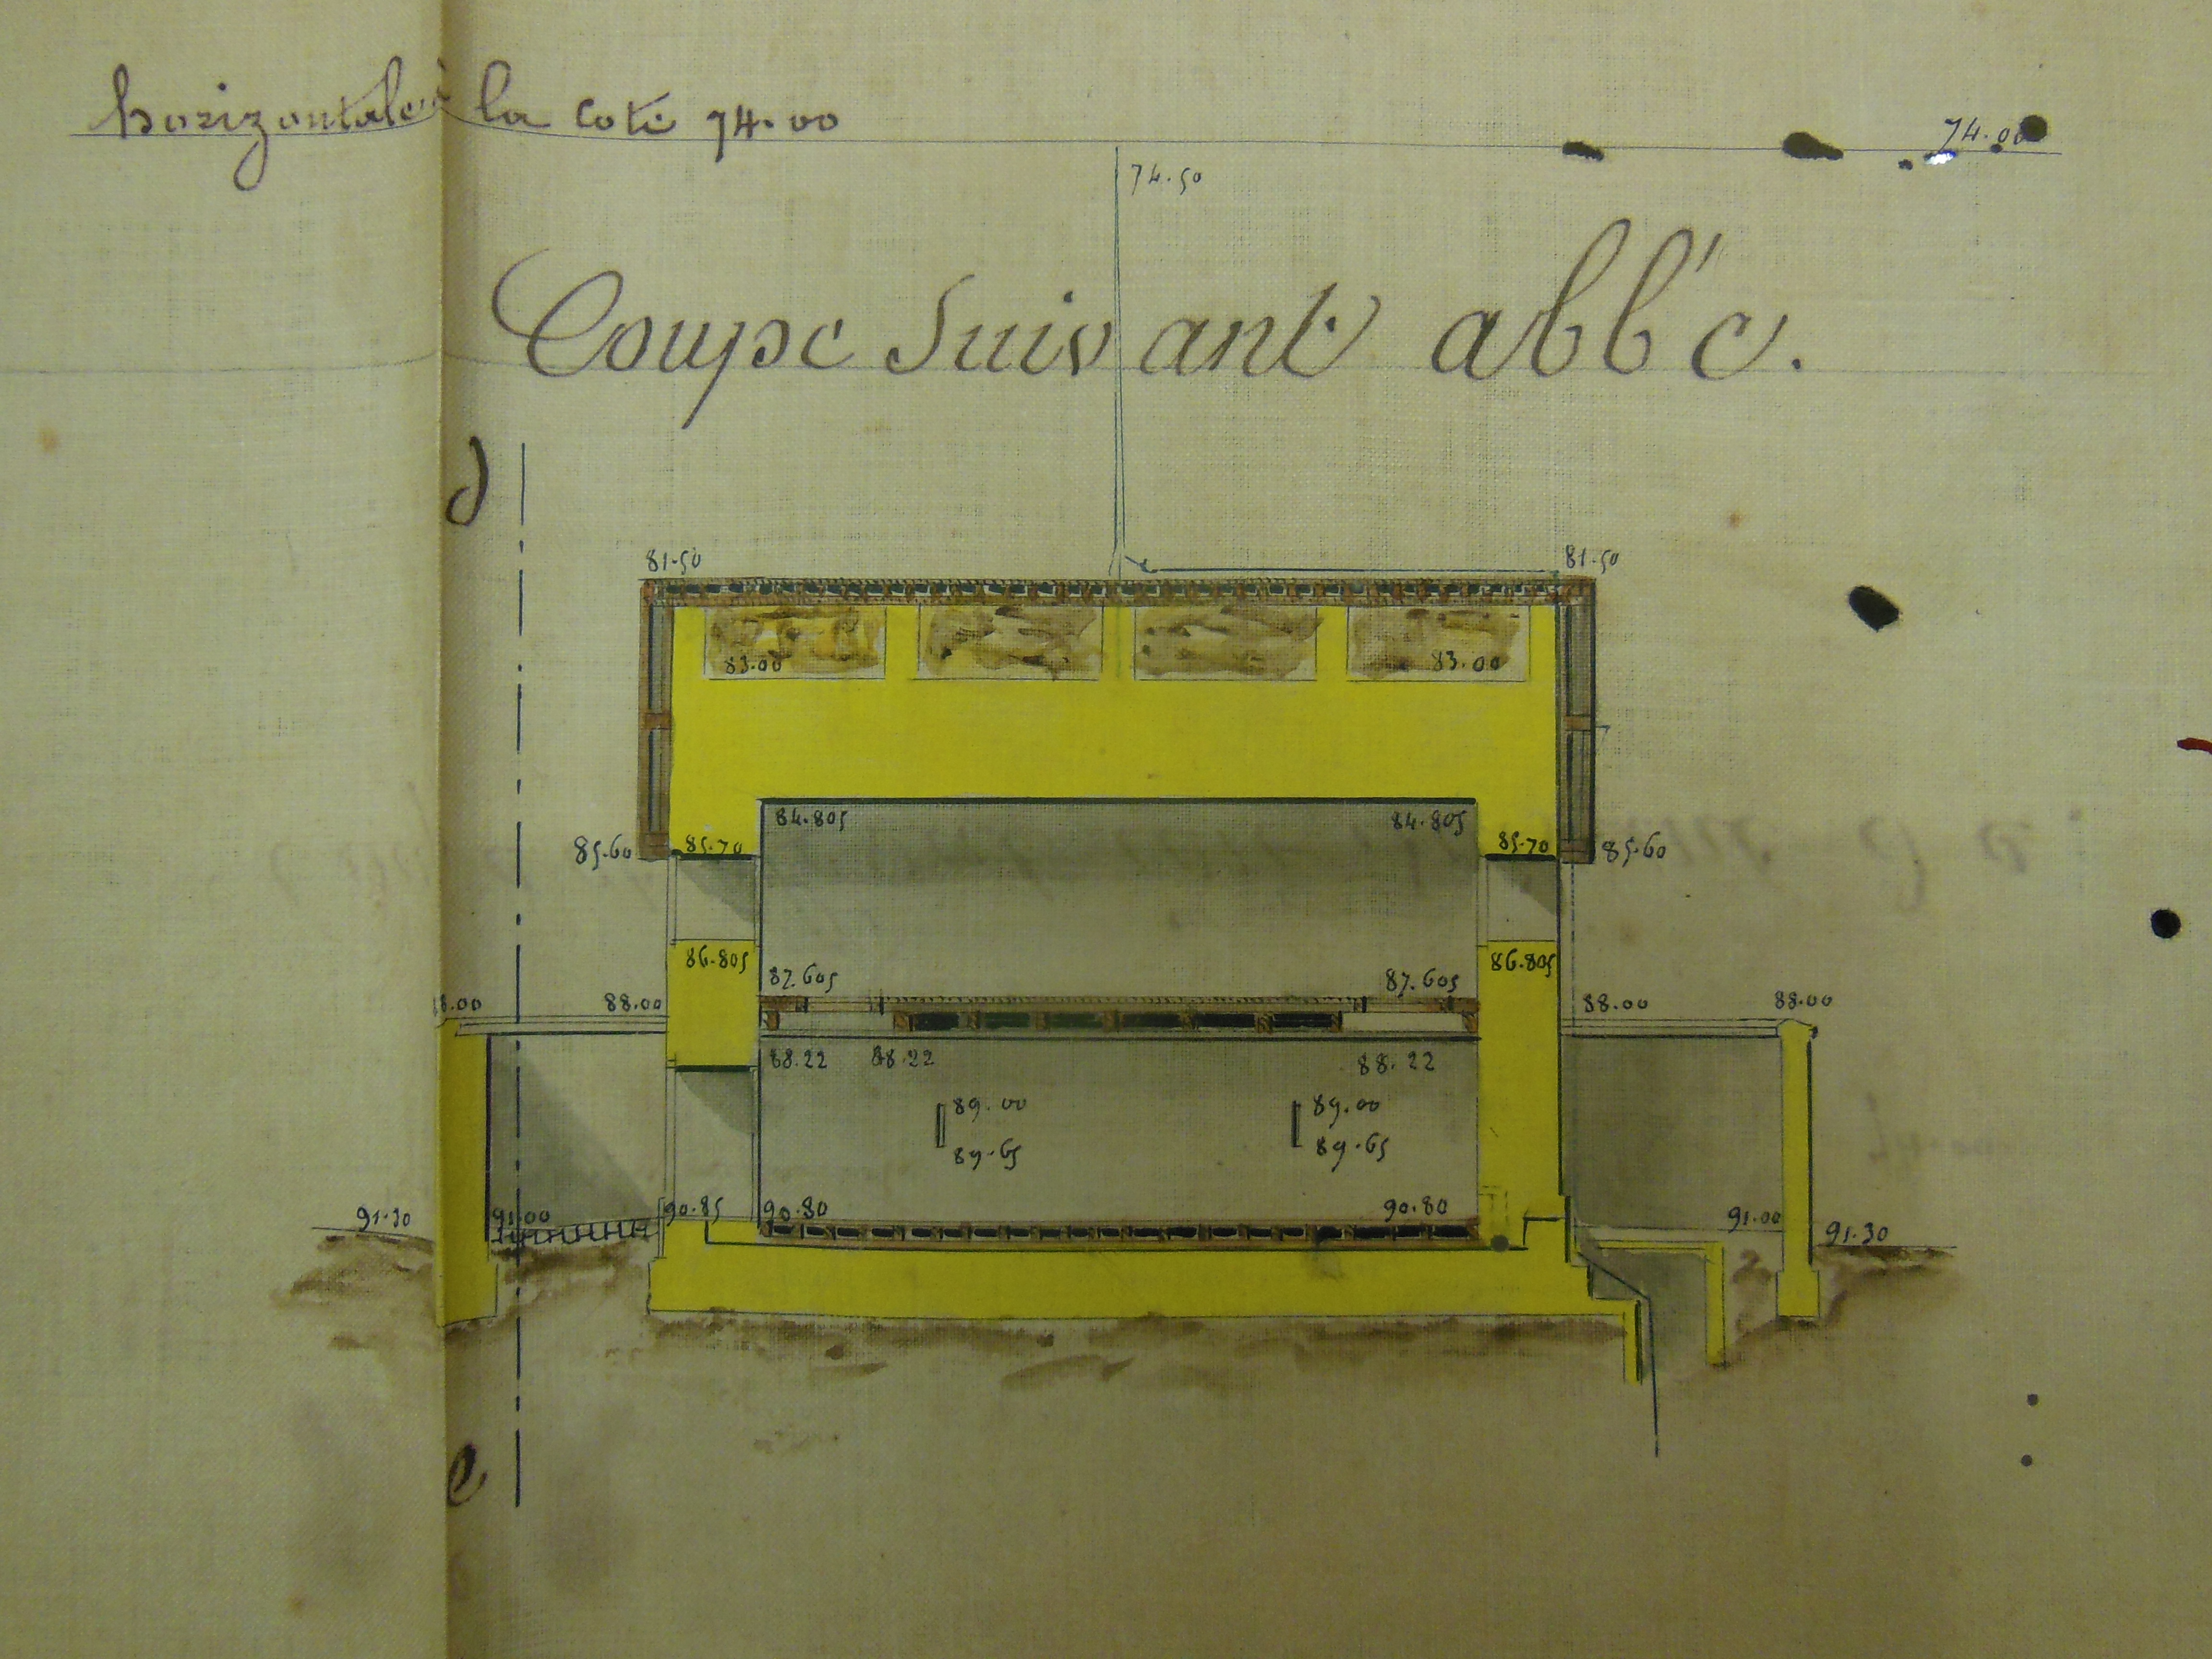 horizontale à la cote 74.00
74.00
74.50
Coupe Suivant abb'c.
d
81.50 81.50
83.00 83.00
84.805 84.805
85.60 85.70 85.70 85.60
86.805 86.805
87.605 87.605
88.00 88.00 88.00 88.00
88.22 88.22 88.22
89.00 89.00
89.65 89.65
91.30 91.00 90.85 90.80 90.80 91.00 91.30
e